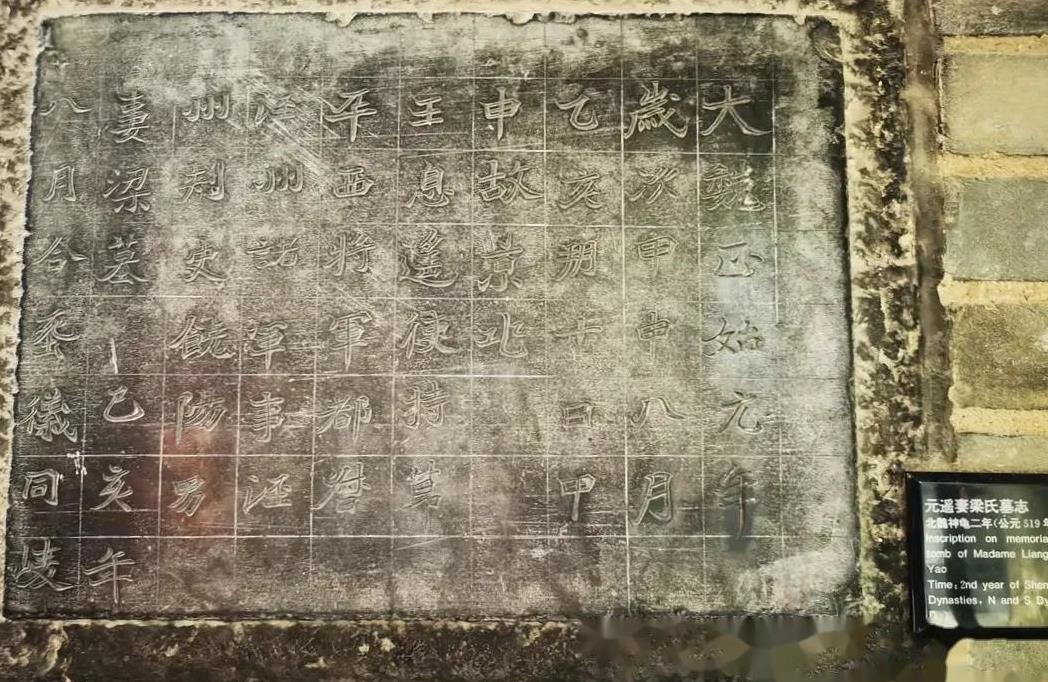 大魏正始元年
歲次甲申八月
乙亥朔十日甲
申故京兆
王息遙使持莭
平西將軍都督
涇州諸軍事涇
州刾史饒陽男
妻梁墓 己亥年
八月合葬儀同陵
元遥妻梁氏墓志
北魏神龟二年(公元519年
Inscription on memoria
tomb of Madame Liang
Yao
Time:2nd year of Shen
Dynasties. N and S Dy